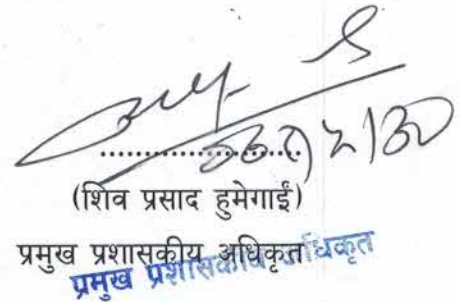 (शिव प्रसाद हुमेगाईं)
प्रमुख प्रशासकीय अधिकृत
प्रमुख प्रशासकीय अधिकृत